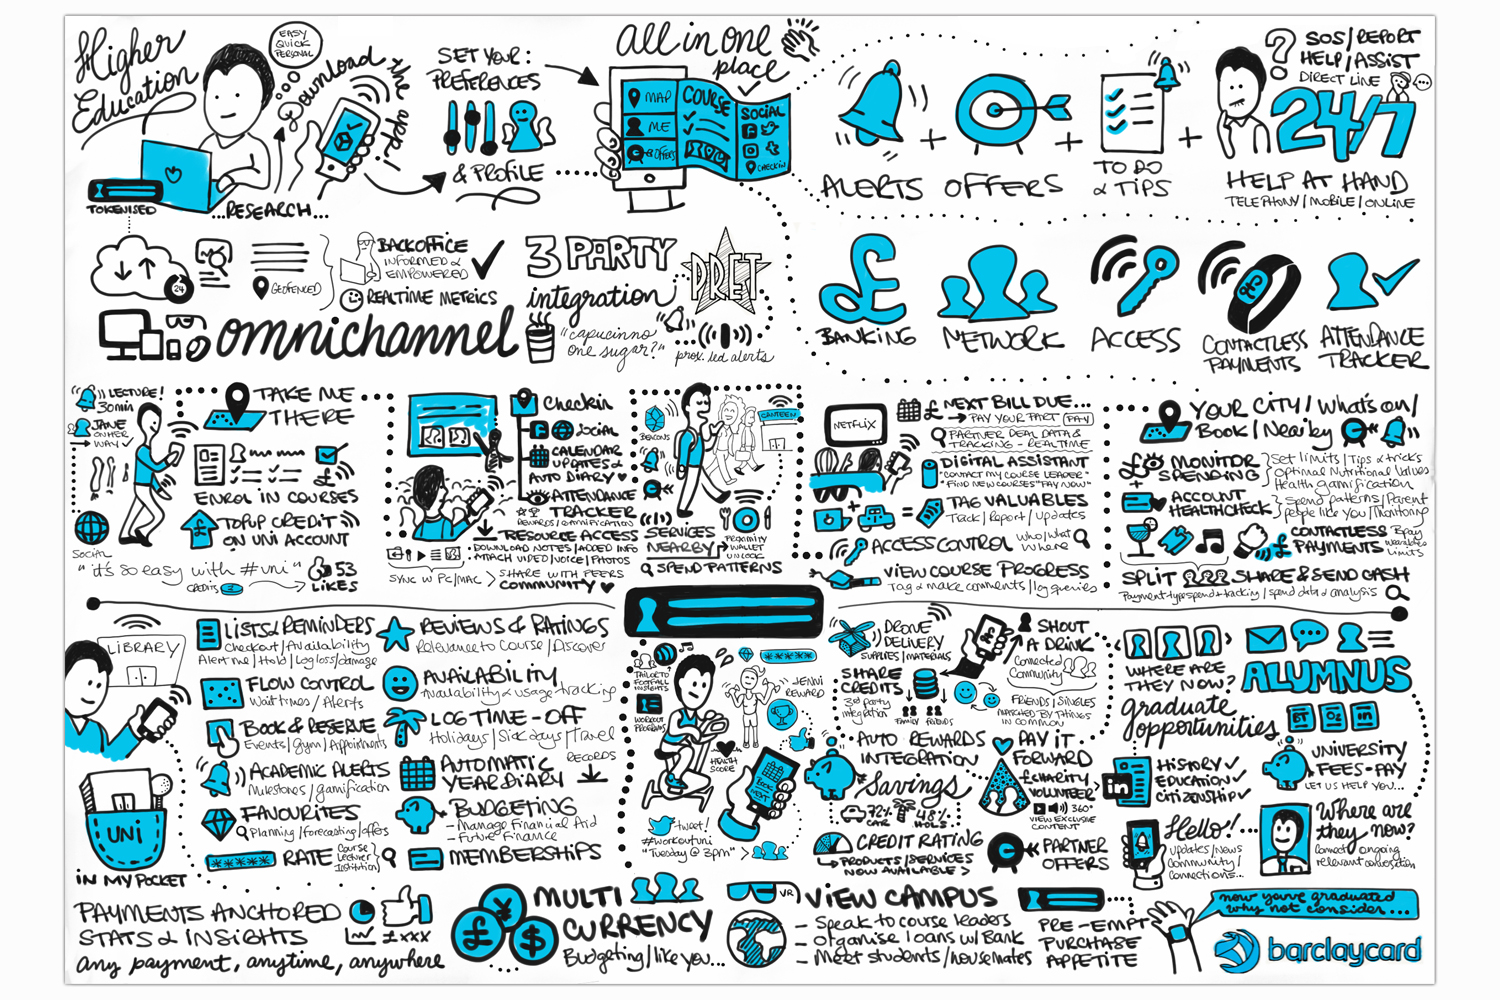 Higher
Education
EASY
QUICK
PERSONAL
Download the app!
TOKENISED
...RESEARCH...
SET YOUR:
PREFERENCES
& PROFILE
All in one
place
MAP
ME
OFFERS
COURSE
SOCIAL
CHECKIN
ALERTS
OFFERS
TO DO
& TIPS
SOS/REPORT
HELP/ASSIST
DIRECT LINE
24/7
HELP AT HAND
TELEPHONY/MOBILE/ONLINE
24
GEOFENCED
BACKOFFICE
INFORMED &
EMPOWERED
REALTIME METRICS
omnichannel
3 PARTY
integration
PRET
"capucinno
one sugar?"
prox. led alerts
BANKING
NETWORK
ACCESS
CONTACTLESS
PAYMENTS
ATTENDANCE
TRACKER
LECTURE!
30min
JANE
ON HER
WAY
TAKE ME
THERE
ENROL IN COURSES
TOPUP CREDIT
ON UNI ACCOUNT
SOCIAL
"it's so easy with #uni"
CREDITS
53
LIKES
Checkin
Social
CALENDAR
UPDATES &
AUTO DIARY
ATTENDANCE
TRACKER
REWARDS/GAMIFICATION
RESOURCE ACCESS
DOWNLOAD NOTES/ADDED INFO
ATTACH VIDEO/VOICE/PHOTOS
SYNC W PC/MAC > SHARE WITH PEERS
COMMUNITY
BEACONS
CANTEEN
SERVICES
NEARBY
PROXIMITY
WALLET
UNLOCK
SPEND PATTERNS
NETFLIX
£ NEXT BILL DUE...
PAY YOUR PART
PAY
PARTNER DEAL DATA &
TRACKING - REALTIME
DIGITAL ASSISTANT
"CONTACT MY COURSE LEADER"
"FIND NEW COURSES" "PAY NOW"
TAG VALUABLES
Track/Report/Updates
ACCESS CONTROL
Who/What
Where
VIEW COURSE PROGRESS
Tag & make comments/log queries
YOUR CITY/What's on/
Book/Nearby
MONITOR
SPENDING
Set limits/Tips & tricks
Optimal Nutritional Values
Health gamification
ACCOUNT
HEALTHCHECK
Spend patterns/Parent
people like you/monitoring
CONTACTLESS
PAYMENTS
Bpay
wearables
limits
SPLIT
SHARE & SEND CASH
Payment-type spend tracking/spend data & analysis
LIBRARY
UNI
IN MY POCKET
LISTS & REMINDERS
Checkout/Availability
Alert me/Hold/Log loss/damage
FLOW CONTROL
Wait times/Alerts
BOOK & RESERVE
Events/Gym/Appointments
ACADEMIC ALERTS
Milestones/gamification
FAVOURITES
Planning/Forecasting/offers
*****
RATE
Course
Lecturer
Institution
REVIEWS & RATINGS
Relevance to Course/Discover
AVAILABILITY
Availability & usage tracking
LOG TIME-OFF
Holidays/Sick days/Travel
RECORDS
AUTOMATIC
YEAR DIARY
BUDGETING
- Manage Financial Aid
- Future Finance
MEMBERSHIPS
TAILOR TO
FOOTFALL
INSIGHTS
WORKOUT
PROGRAMS
*****
JENNI
REWARD
HEALTH
SCORE
BOOK
NEXT
tweet!
#workoutuni
"Tuesday @ 3pm" >
DRONE
DELIVERY
SUPPLIES/MATERIALS
SHARE
CREDITS
3rd party
integration
FAMILY
FRIENDS
SHOUT
A DRINK
Connected
Community
FRIENDS/SINGLES
MATCHED BY THINGS
IN COMMON
AUTO REWARDS
INTEGRATION
Savings
CAR
48%
HOLS
CREDIT RATING
PRODUCTS/SERVICES
NOW AVAILABLE >
PAY IT
FORWARD
£ CHARITY
VOLUNTEER
360°
VIEW EXCLUSIVE
CONTENT
PARTNER
OFFERS
WHERE ARE
THEY NOW?
ALUMNUS
graduate
opportunities
BT
O2
in
HISTORY
EDUCATION
CITIZENSHIP
UNIVERSITY
FEES-PAY
LET US HELP YOU...
Hello!
Updates/News
Community/
Connections...
Where are
they now?
Connect ongoing
relevant conversation
PAYMENTS ANCHORED
STATS & INSIGHTS
£xxx
any payment, anytime, anywhere
£
¥
$
MULTI
CURRENCY
Budgeting/like you...
VR
VIEW CAMPUS
- SPEAK TO COURSE LEADERS
- ORGANISE LOANS W/BANK
- MEET STUDENTS/HOUSEMATES
PRE-EMPT
PURCHASE
APPETITE
now you've graduated
why not consider...
barclaycard